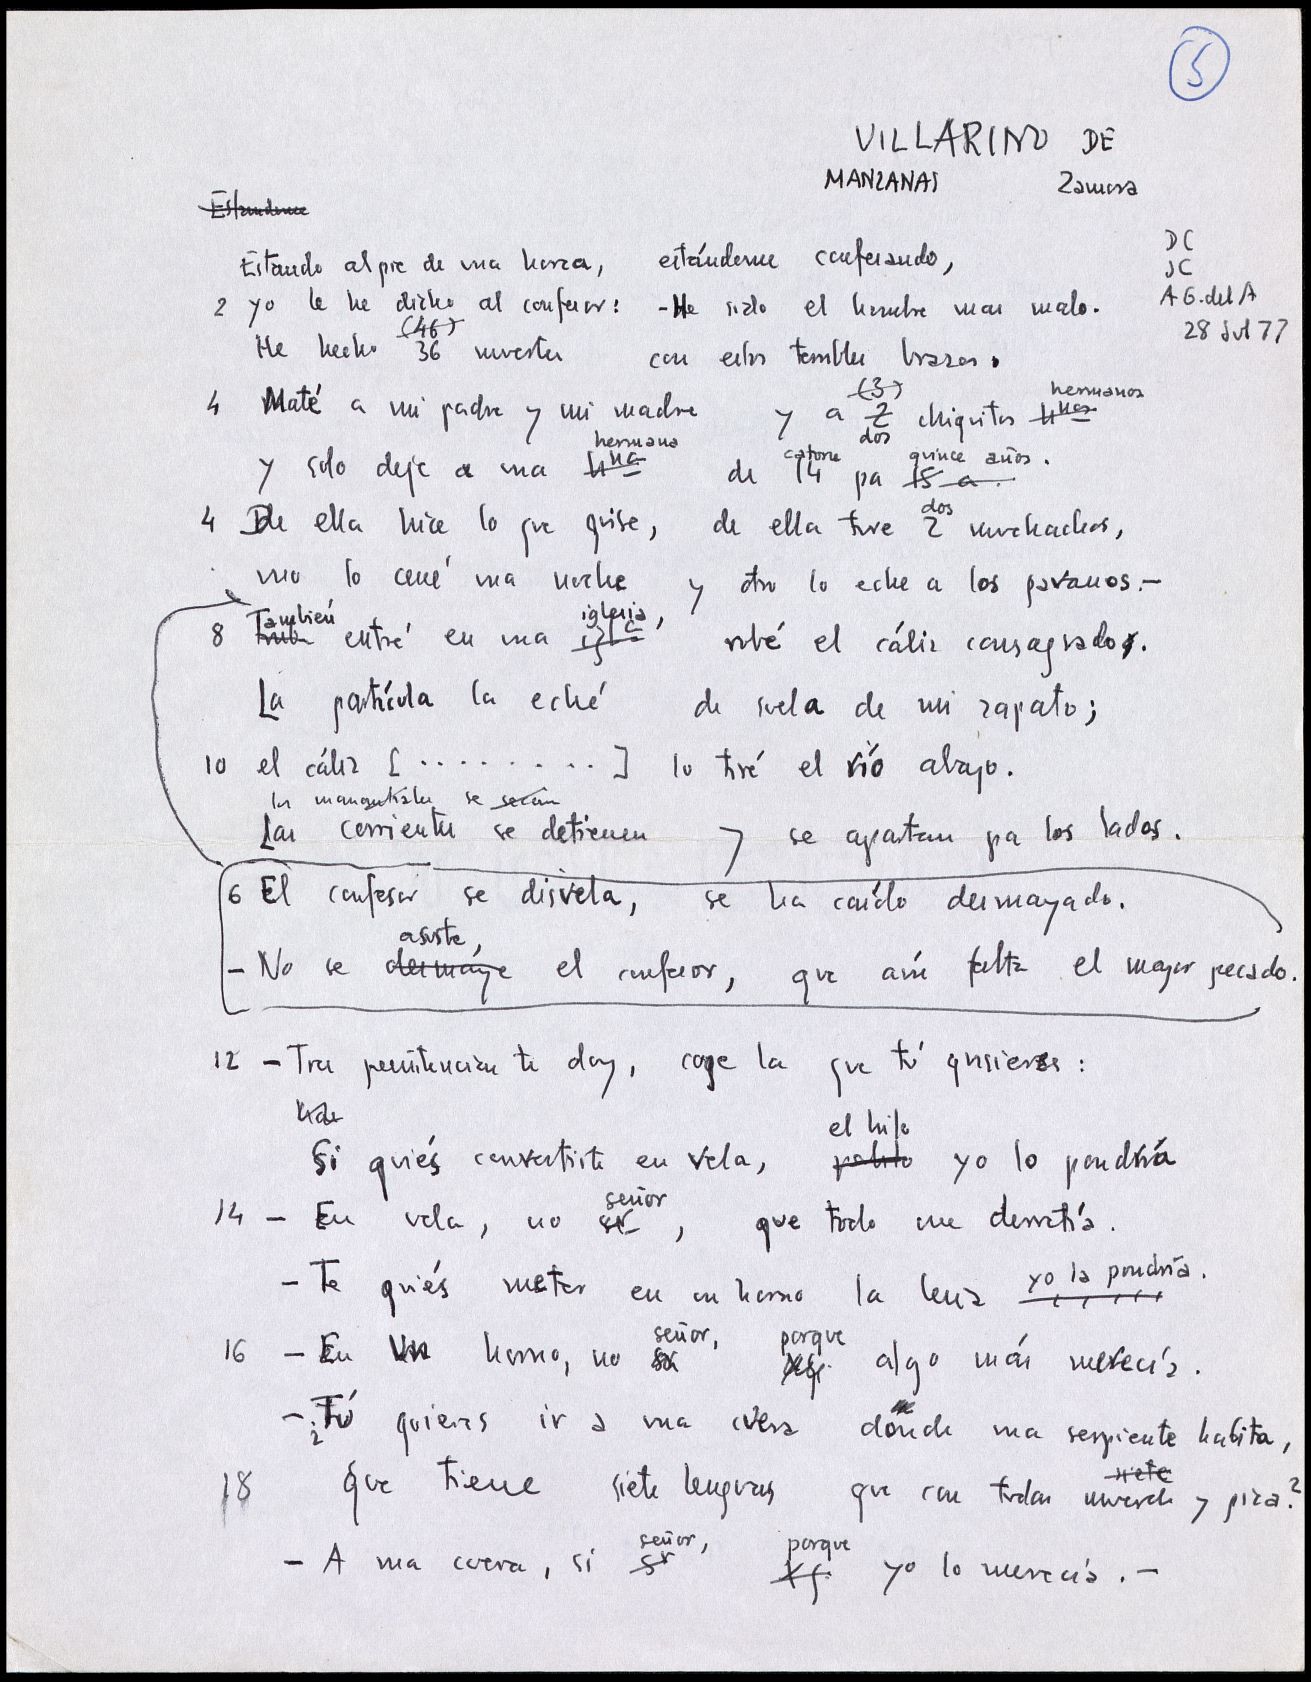 5
VILLARINO DE
MANZANAS Zamora
Estandome
DC
JC
A G. del A
28 Jul 77
Estando al pie de una horca, estándome confesando,
2 yo le he dicho al confesor: -He sido el hombre mas malo.
(46)
He hecho 36 muertes con estos terribles brazos.
(3) hermanos
4 Maté a mi padre y mi madre y a 2 chiquitos hnos
hermana dos catorce quince años.
y solo dejé a una hna de 14 pa 15 a.
dos
4 De ella hice lo que quise, de ella tuve 2 muchachos,
uno lo cené una noche y otro lo eche a los pavanos.-
También iglesia,
8 entré en una igla robé el cáliz consagrado.
La partícula la eché de suela de mi zapato;
10 el cáliz [ . . . . . . . . . ] lo tiré el río abajo.
los manantiales se secan
Las corrientes se detienen y se apartan pa los lados.
6 El confesor se disvela, se ha caído desmayado.
asuste,
- No se desmaye el confesor, que aún falta el mayor pecado.
12 - Tres penitencias te doy, coge la que tú quisieres:
el hilo
Si quiés convertirte en vela, pabilo yo lo pondría
señor
14 - En vela, no sr, que todo me derretía.
- Te quiés meter en un horno la leña yo la pondría.
señor, porque
16 - En un horno, no sr xq. algo más merecía.
- ¿Tú quieres ir a una cueva donde una serpiente habita,
siete
18 que tiene siete lenguas que con todas muerde y pica?
señor, porque
- A una cueva, si sr xq. yo lo merecía. -